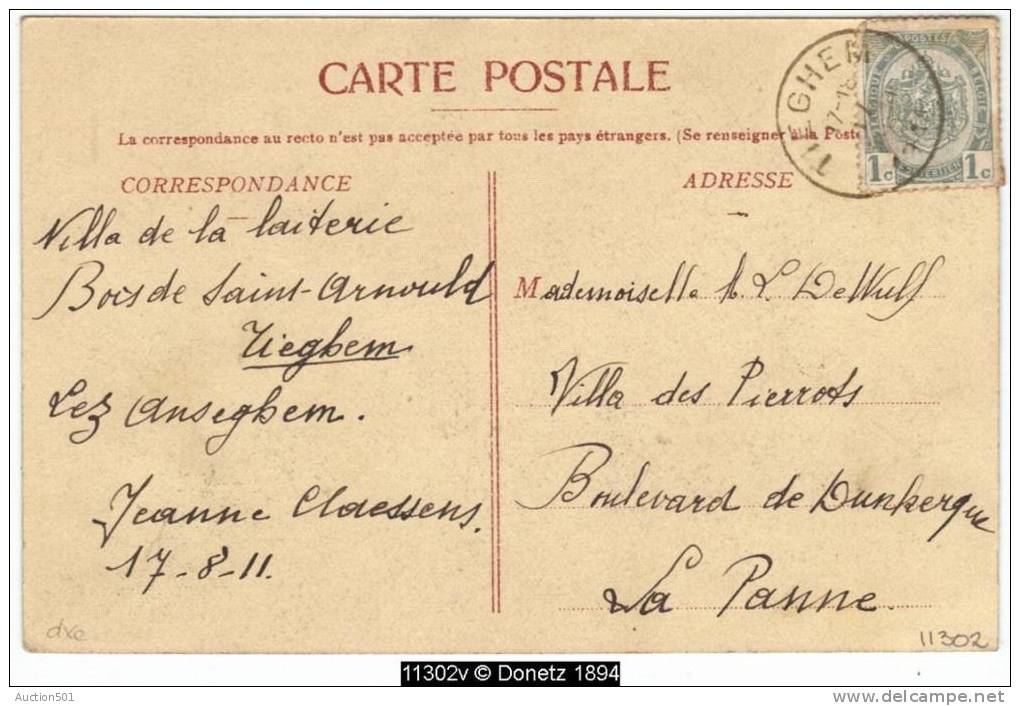 CARTE POSTALE
La correspondance au recto n'est pas acceptée par tous les pays étrangers. (Se renseigner à la Poste
CORRESPONDANCE
Villa de la laiterie
Bois de Saint-Arnould
Tieghem
Lez Anseghem.
Jeanne Claessens.
17-8-11.
ADRESSE
Mademoiselle M. L. DeWulf
Villa des Pierrots
Boulevard de Dunkerque
La Panne.
TIEGHEM
17-18
POSTES
BELGIQUE
BELGIË
1c 1c
dxe
11302
11302v © Donetz 1894
Auction501
www.delcampe.net